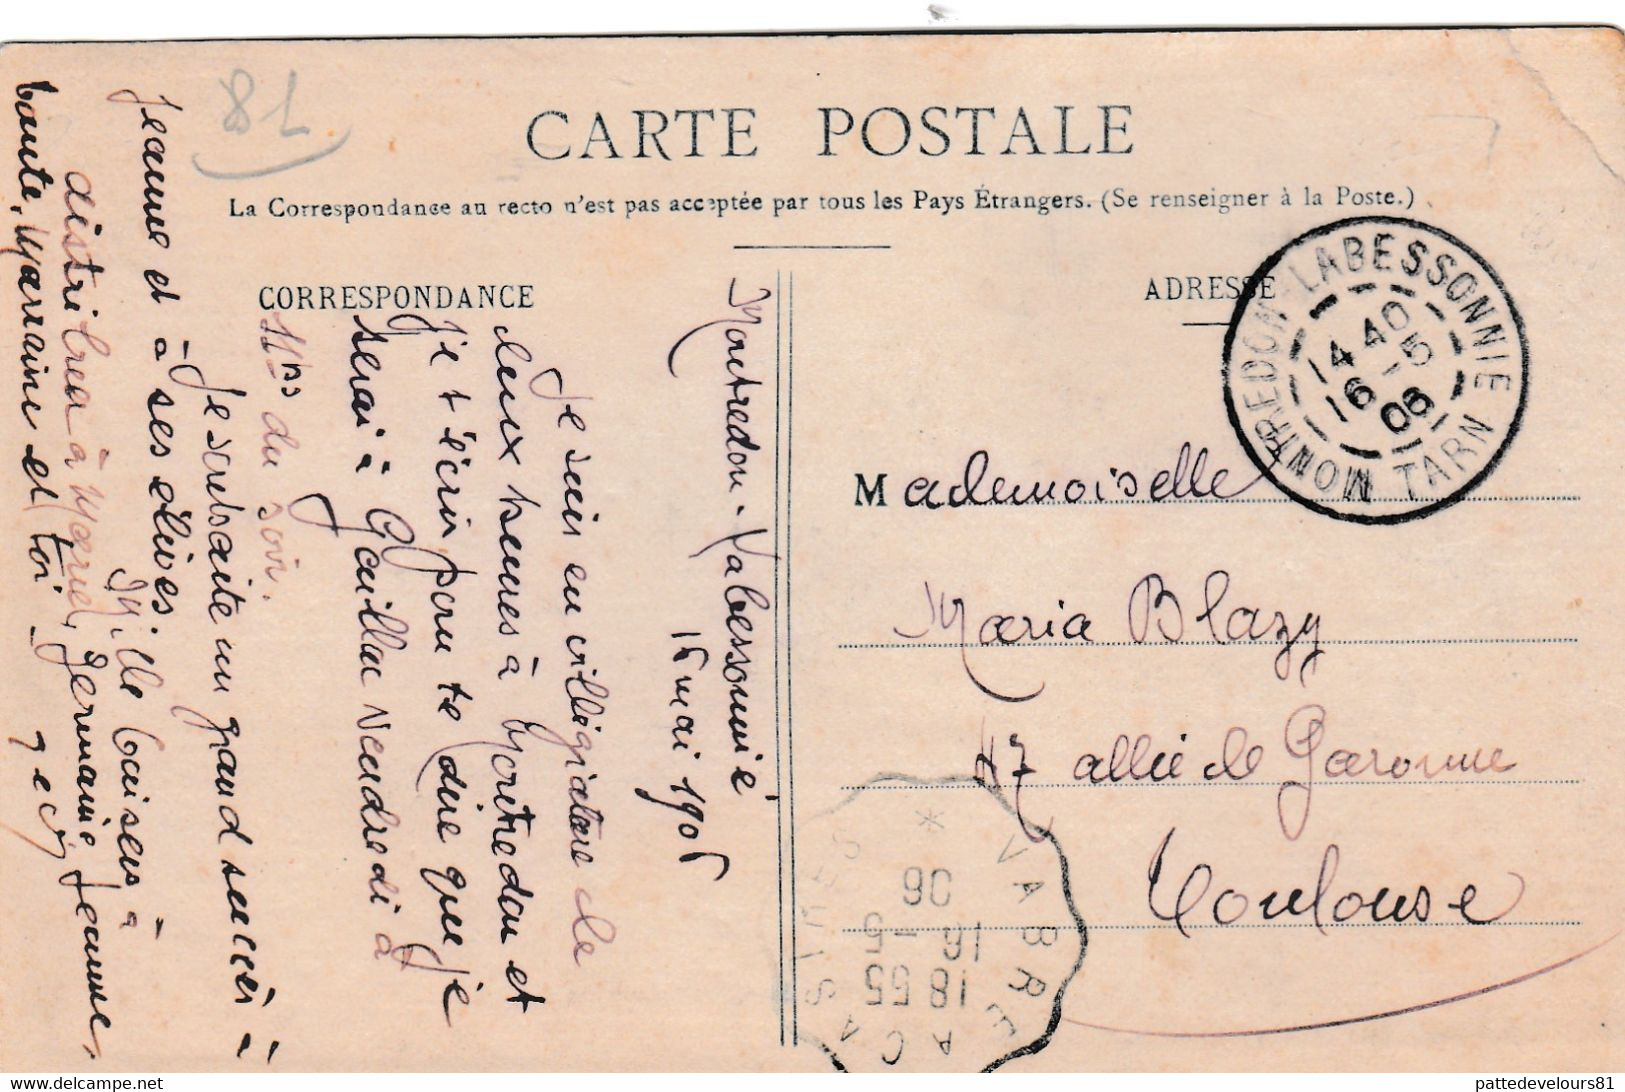 81
CARTE POSTALE
La Correspondance au recto n'est pas acceptée par tous les Pays Étrangers. (Se renseigner à la Poste.)
CORRESPONDANCE
ADRESSE
Montredon-Labessonnié
16 mai 1906
Je suis en villégiature de
deux heures à Montredon et
Je t'écris pour te dire que je
serai à Gaillac vendredi à
11 hrs du soir.
Je souhaite un grand succès à
Jeanne et à ses élèves.
Mille baisers à
distribuer à Marcel, Germaine, Jeanne,
tante, Marraine et toi.
Mademoiselle
Maria Blazy
47 allée de Garonne
Toulouse
MONTREDON-LABESSONNIE
TARN
14 40
16 -5
06
VABRE A CASTRES
18 55
16 -5
06
pattedevelours81